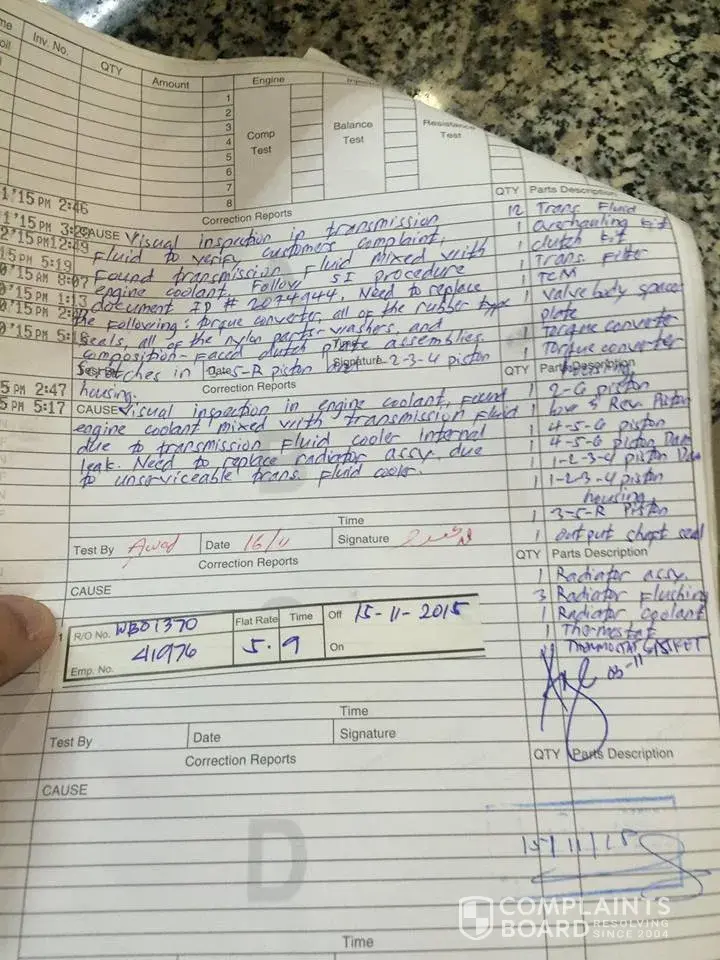 Inv. No.
QTY
Amount
Engine
Comp
Test
Balance
Test
Resistance
Test
1
2
3
4
5
6
7
8
Correction Reports
QTY Parts Description
1'15 PM 2:46
1'15 PM
2'15 PM 12:49
15 PM 5:19
0'15 AM 8:07
0'15 PM 1:13
0'15 PM
0'15 PM
CAUSE Visual inspection in transmission
fluid to verify customers complaint,
Found transmission fluid mixed with
engine coolant. Follow SI procedure
document ID # 2074944, Need to replace
the following: torque converter, all of the rubber type
seals, all of the nylon parts-washers, and
composition-faced clutch plate assemblies.
12 Trans Fluid
1 Overhauling kit
1 clutch kit
1 Trans. Filter
1 TCM
1 Valve body spacer
plate
1 Torque converter
1 Torque converter
housing.
Date
Signature
1-2-3-4 piston
Correction Reports
QTY Parts Description
5 PM 2:47
5 PM 5:17
CAUSE Visual inspection in engine coolant, found
engine coolant mixed with transmission fluid
due to transmission fluid cooler internal
leak. Need to replace radiator assy. due
to unserviceable trans. fluid cooler.
1 2-6 piston
1 Low & Rev. Piston
1 4-5-6 piston
1 4-5-6 piston Dam
1 1-2-3-4 piston Dam
1 1-2-3-4 piston
housing.
1 3-5-R Piston
1 output shaft seal
Time
Test By Awad
Date 16/11
Signature
Correction Reports
QTY Parts Description
CAUSE
1 Radiator assy.
3 Radiator flushing
1 Radiator coolant
1 Thermostat
1 THERMOSTAT GASKET
R/O No. WB01370
Flat Rate
Time
Off 15-11-2015
Emp. No. 41976
5.9
On
Time
Test By
Date
Signature
Correction Reports
QTY Parts Description
CAUSE
15/11/15
D
Time
COMPLAINTS
BOARD RESOLVING
SINCE 2004